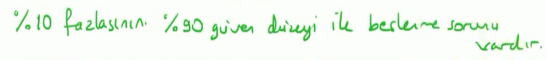 %10 fazlasının. %90 güven düzeyi ile beslenme sorunu
vardır.